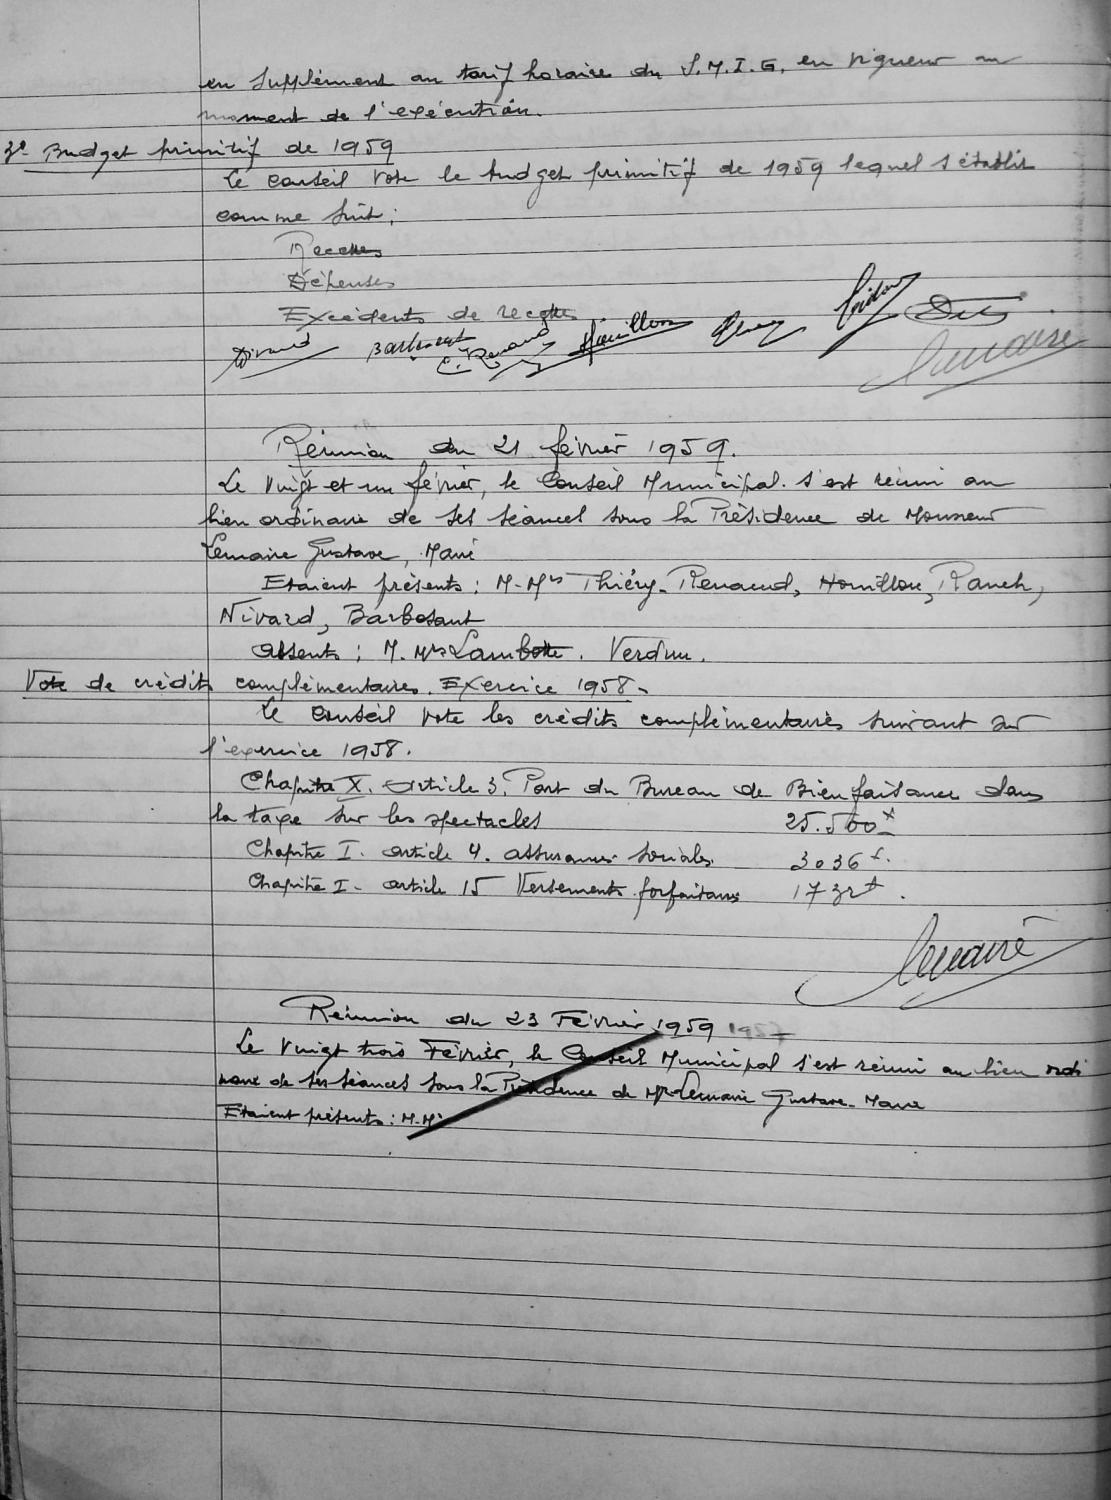 en supplément au tarif horaire du S.M.I.G. en vigueur au
moment de l'exécution.
3e Budget primitif de 1959
Le conseil vote le budget primitif de 1959 lequel s'établit
comme suit :
Recettes
Dépenses
Excédents de recettes
Nivard Barbosaut C. Renaud Houillon
Lemaire
Réunion du 21 février 1959.
Le vingt et un février, le Conseil Municipal s'est réuni au
lieu ordinaire de ses séances sous la Présidence de Monsieur
Lemaire Gustave, Maire
Etaient présents : M-Mrs Thiéry-Renaud, Houillon, Ranch,
Nivard, Barbosaut
Absents : M. Mrs Lambotte. Verdun.
Vote de crédits complémentaires. Exercice 1958-
Le conseil vote les crédits complémentaires suivant sur
l'exercice 1958.
Chapitre X. Article 3. Part du Bureau de Bienfaisance dans
la taxe sur les spectacles 25.500
Chapitre I. article 4. assurances sociales. 3036 f.
Chapitre I - article 15 Versements forfaitaires 1732 f.
Lemaire
Réunion du 23 Février 1959
Le vingt trois Février, le Conseil Municipal s'est réuni au lieu ordi
naire de ses séances sous la Présidence de Mr Lemaire Gustave - Maire
Etaient présents : M-M